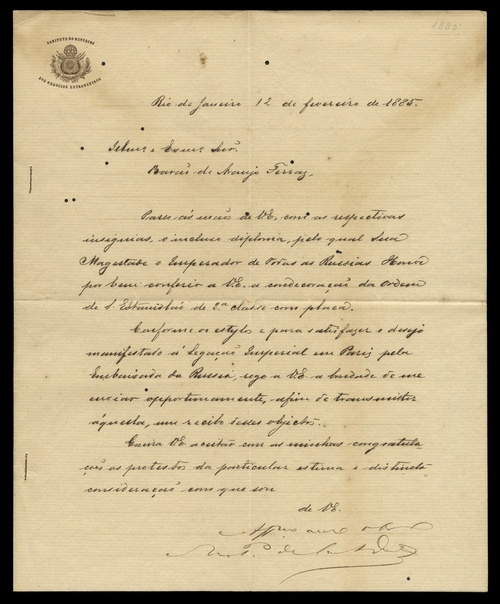 1885
GABINETE DO MINISTRO
DOS NEGOCIOS ESTRANGEIROS
Rio de Janeiro 12 de fevereiro de 1885.
Illmo. e Exmo. Snr.
Barão de Araujo Ferraz,
Passo ás mãos de V.E, com as respectivas
insignias, o incluso diploma, pelo qual Sua
Magestade o Imperador de todas as Russias Houve
por bem conferir a V.E. a condecoração da Ordem
de S. Estanisláo de 2.a classe com placa.
Conforme os estylos e para satisfazer o desejo
manifestado á Legação Imperial em Paris pela
Embaixada da Russia, rogo a V.E a bondade de me
enviar opportunamente, afim de transmittir
áquella, um recibo desses objectos.
Queira V.E acceitar com as minhas congratula
ções os protestos da particular estima e distincta
consideração com que sou
de V.E.